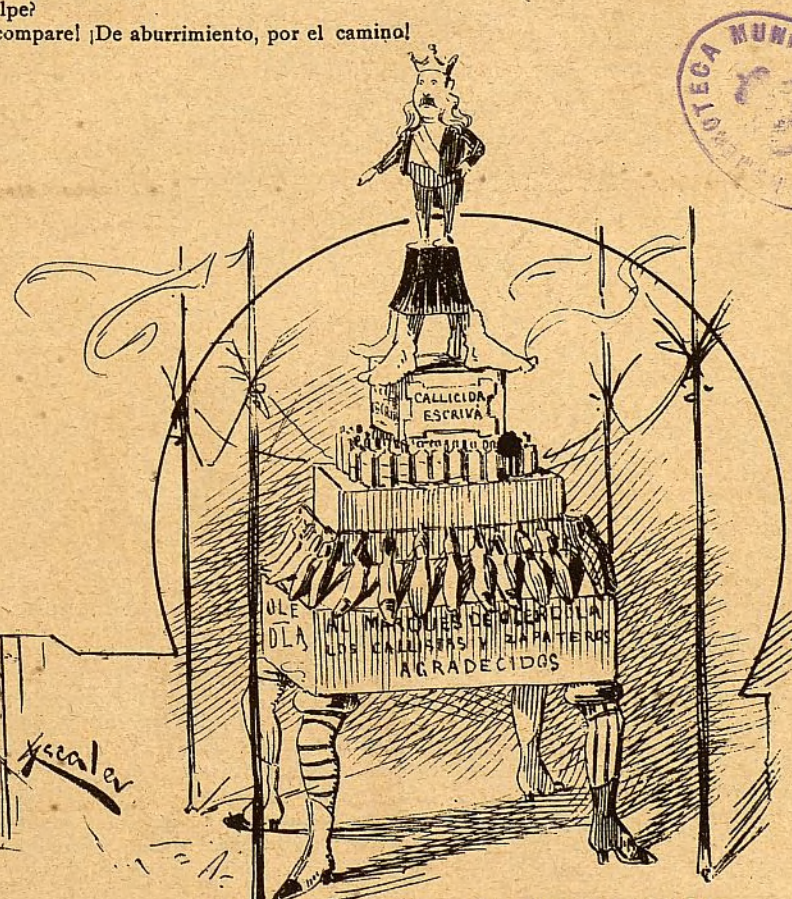 lpe?
compare! ¡De aburrimiento, por el camino!
HEMEROTECA MUNI
CALLICIDA
ESCRIVÁ
OLE
DLA
AL MARQUÉS DE OLERDULA
LOS CALLISTAS Y ZAPATEROS
AGRADECIDOS
Escaler